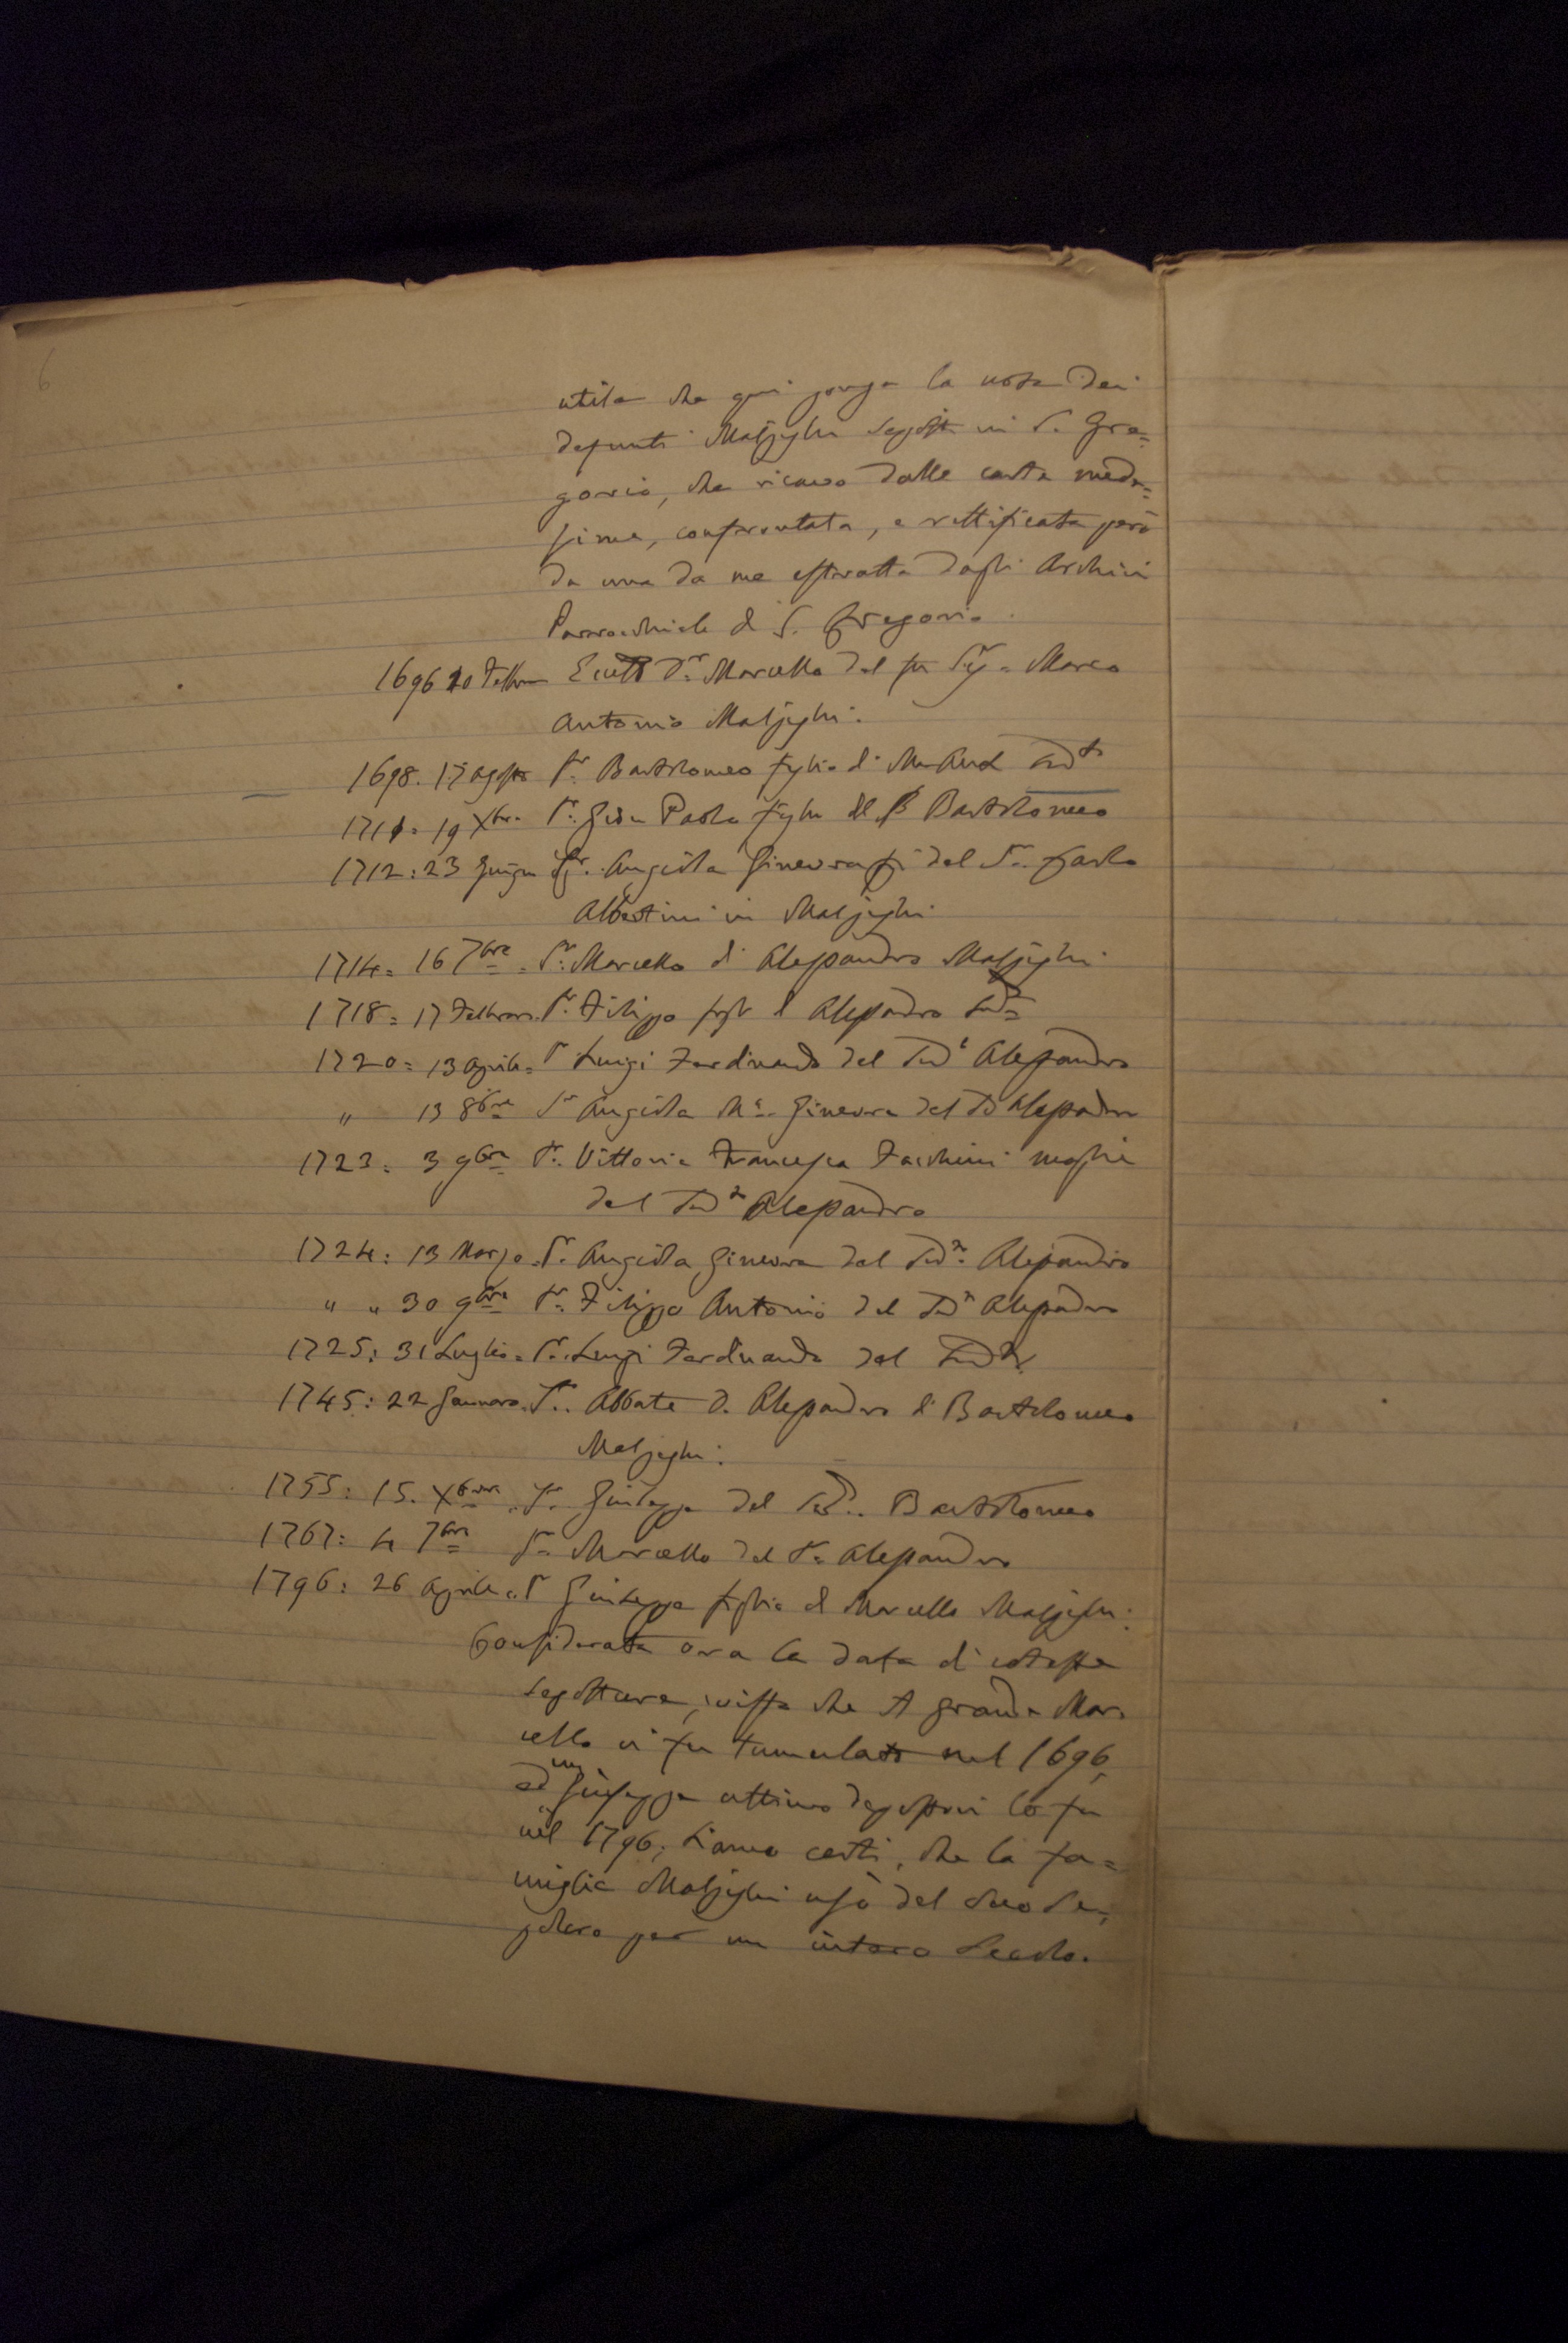 6
utile che qui ponga la nota dei
defunti Malpighi sepolti in S. Gre=
gorio, che ricavo dalle carte mede=
sime, confrontata, e rettificata però
da una da me estratta dagli Archivi
Parrocchiale di S. Gregorio.
1696 10 Febbr Dr. Marcello del fu Sigr Marco
Antonio Malpighi.
1698. 17 Agosto Sr. Bartolomeo figlio di
1711= 19 Xbre Sr. Paolo figlio del Bartolomeo
1712: 23 Giugn Angiola Ginevra del Sr. Carlo
Albertini in Malpighi
1714= 16 7bre = Sr. Marcello di Alessandro Malpighi
1718= 17 Febbraro. Sr. Filippo di Alessandro Sudo=
1720= 13 Aprile= Sr Luigi Ferdinando del Sudo Alessandro
" 13 8bre Sr Angiola Ma. Ginevra del Alessandro
1723: 3 9bre Sra. Vittoria Francesca Facchini moglie
del Sudo Alessandro
1724: 13 Marzo. Sr. Angiola Ginevra del Sudo. Alessandro
" " 30 9bre Sr. Filippo Antonio del Sudo Alessandro
1725: 31 Luglio= Sr. Luigi Ferdinando del Sudo
1745: 22 Gennaro. Sr. Abbate D. Alessandro di Bartolomeo
Malpighi:
1755: 15. Xbre. Sr. Giuseppe del Sudo. Bartolomeo
1767: 4 7bre Sr Marcello del Sr. Alessandro
1796: 26 Aprile. Sr Giuseppe figlio di Marcello Malpighi:
Considerata ora la data di coteste
sepolture, visto che il grande Mar
cello vi fu tumulato nel 1696,
ed un Giuseppe ultimo depostovi lo fu
nel 1796, siamo certi, che la fa=
miglia Malpighi usò del suo Se=
polcro per un intero Secolo.